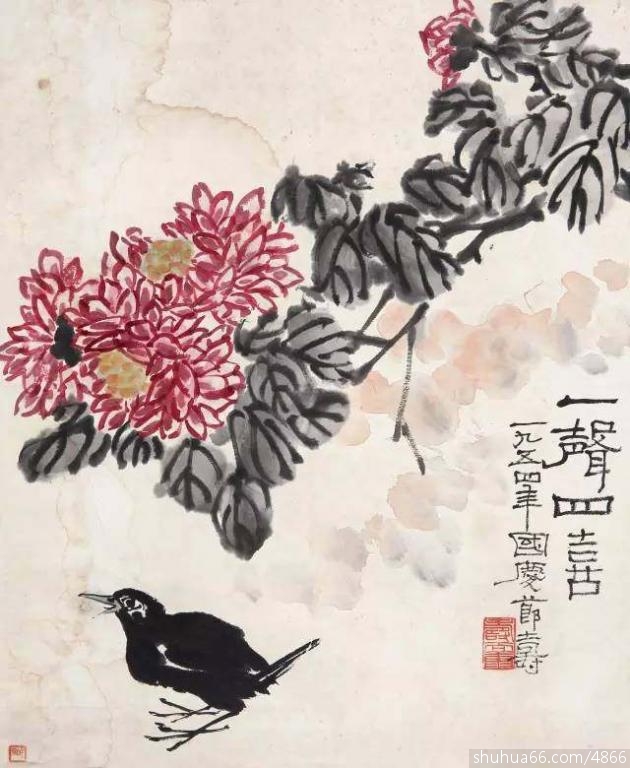 一聲四喜
一九五四年國慶節壽
shuhua66.com/4866